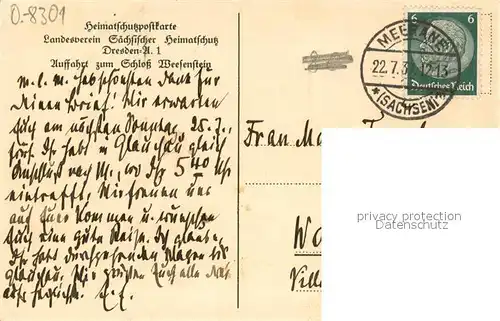 O-8301
Heimatschutzpostkarte
Landesverein Sächsischer Heimatschutz
Dresden-A. 1
Auffahrt zum Schloß Weesenstein
M. l. M. Hab schönsten Dank für
Deinen Brief! Wir erwarten
Euch am nächsten Sonntag 25.7.,
Ihr habt in Glauchau gleich
Anschluß nach M., wo Ihr 5 40 Uhr
eintrefft. Wir freuen uns
auf Euer Kommen u. wünschen
Euch eine gute Reise. Ich glaube,
Ihr habt durchgehenden Wagen bis
Glauchau. Wir grüßen Euch alle
MEERANE
22.7.3 12-13
*(SACHSEN)
6 6
Deutsches Reich
Frau
privacy protection
Datenschutz